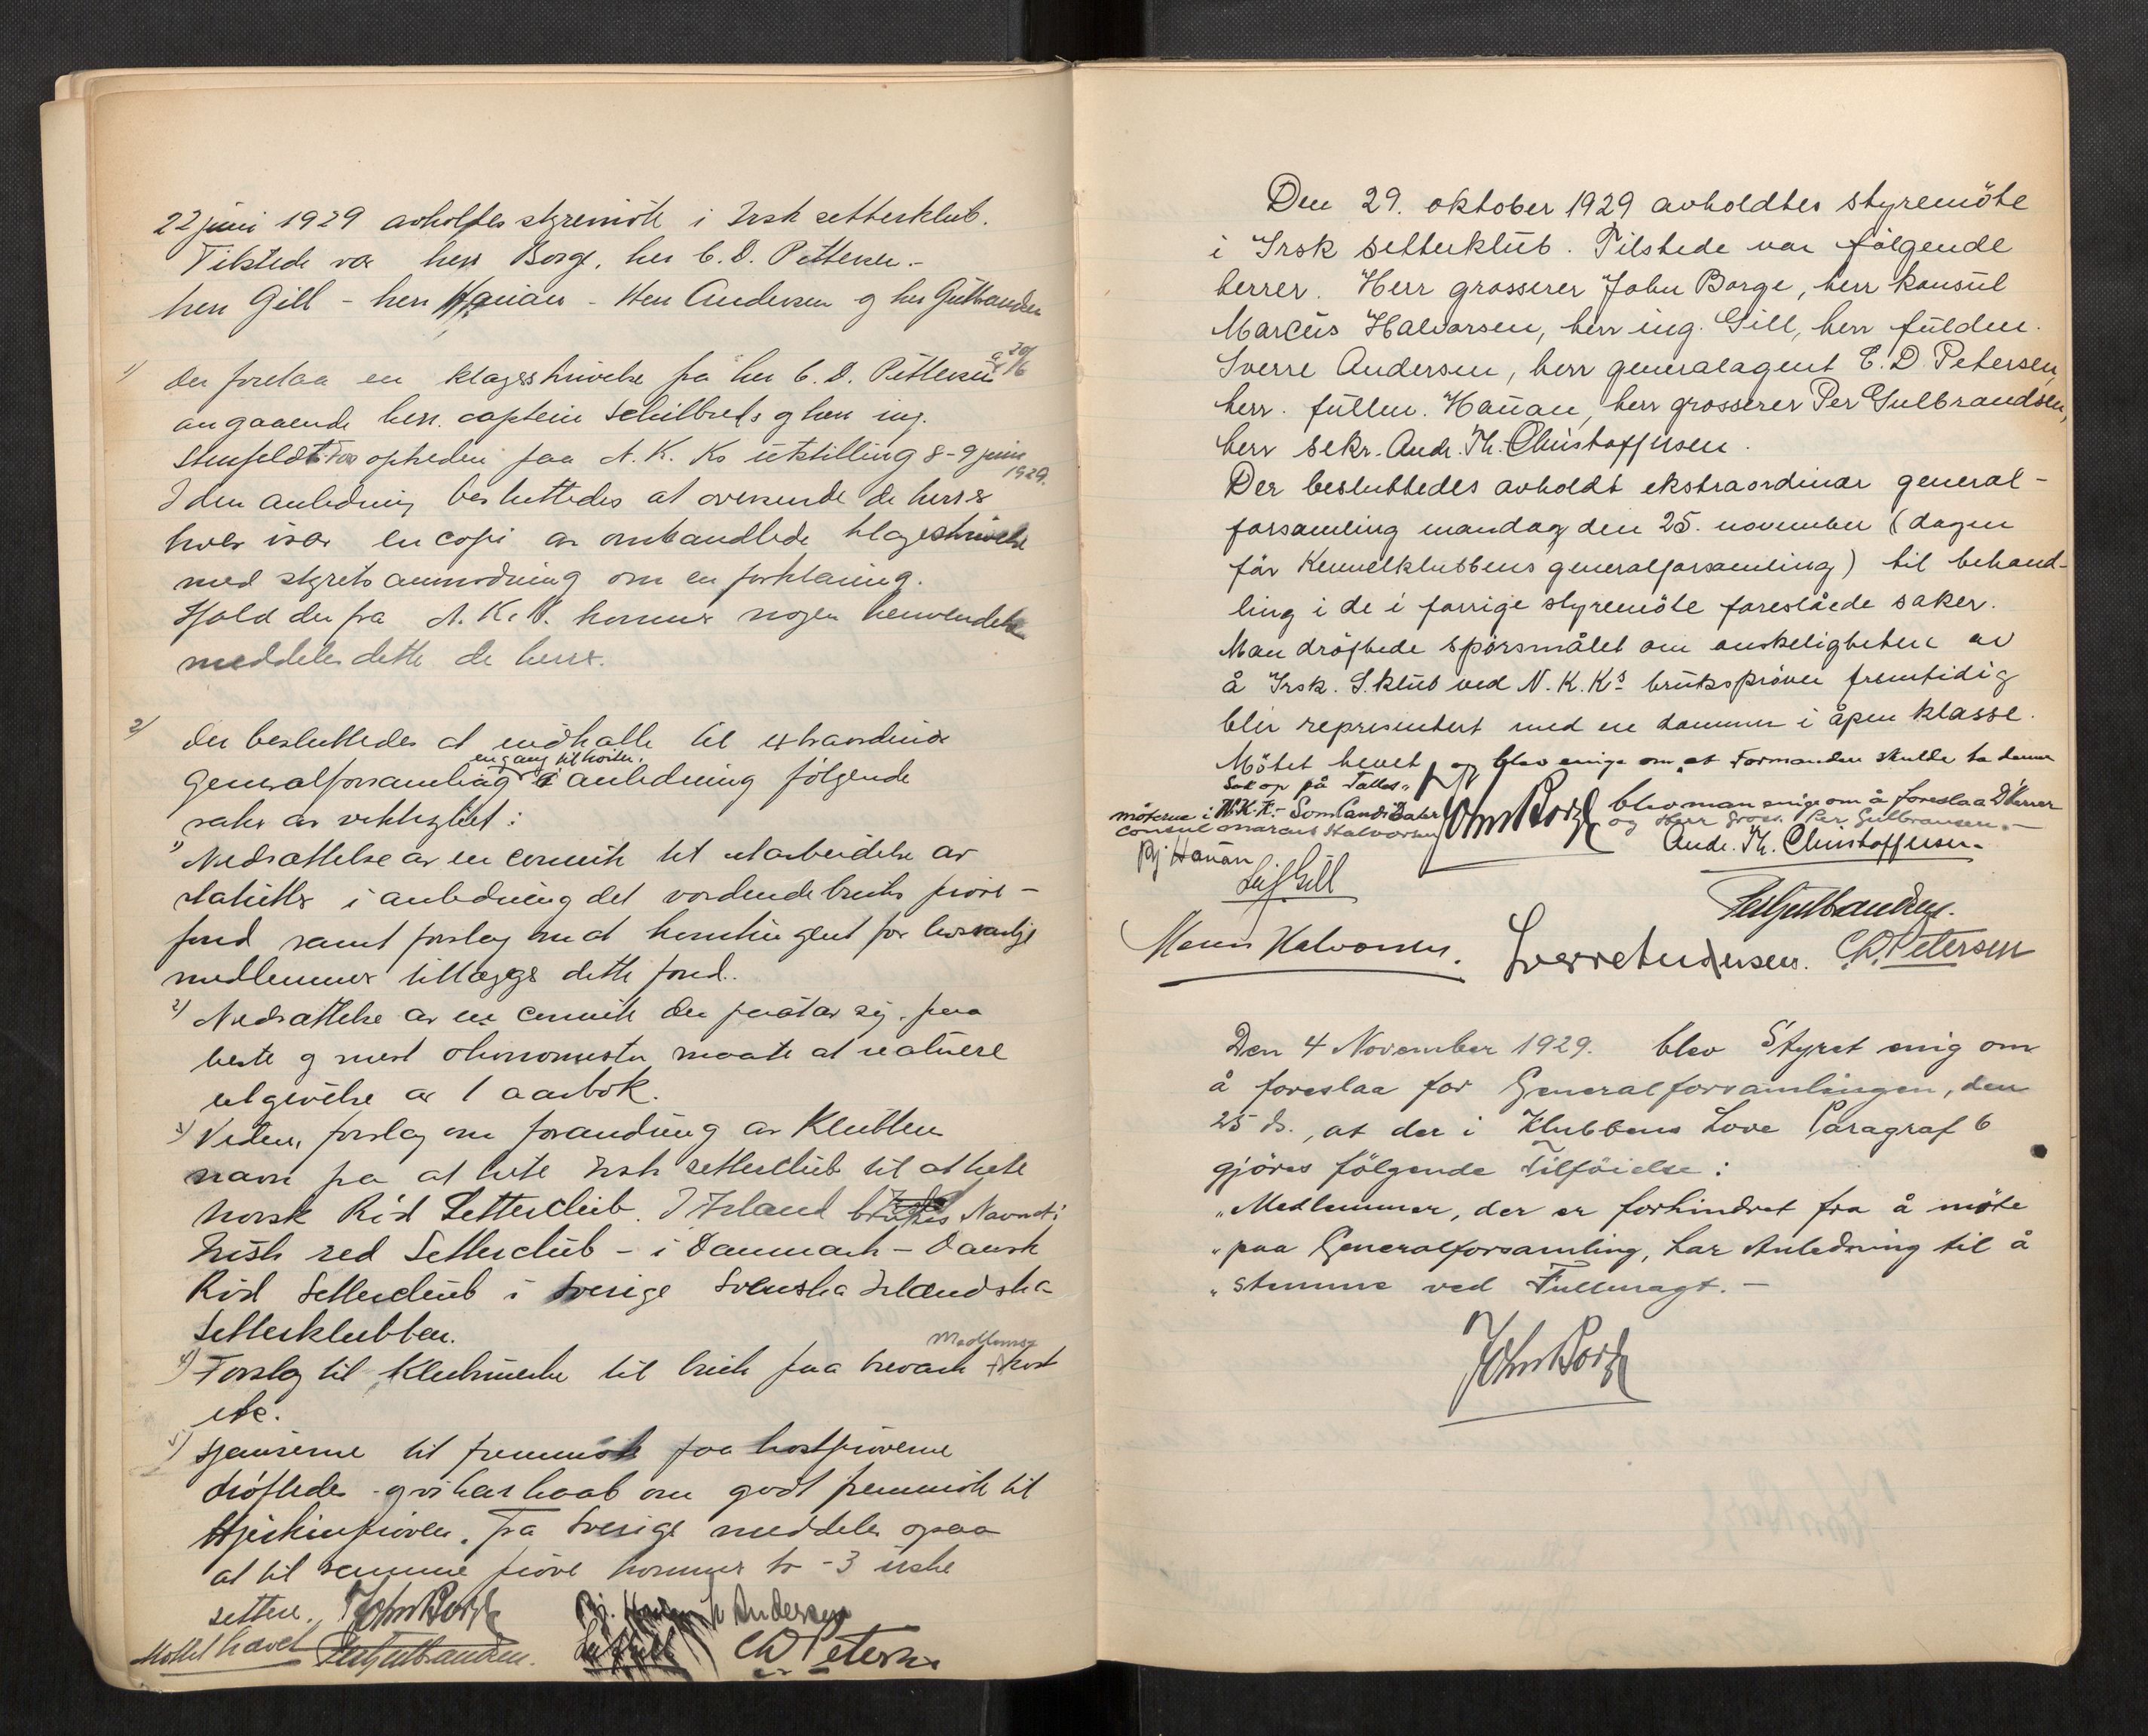 22 juni 1929 avholdtes styremöte i Irsk setterklub.
Tilstede var herr Borge, herr C. D. Pettersen -
herr Gill - herr Hanan - Herr Andersen og herr Gulbrandsen
1) Der forelaa en klageskrivelse fra herr C. D. Pettersen av 20/6
angaaende herr. captein Schilbreds og herr ing.
optreden paa N. K. Ks utstilling 8-9 juni
1929.
I den anledning besluttedes at oversende de herrer
hver især en copi av ombandlede klageskrivelse
med styrets anmodning om en forklaring.
Hvold der fra N. K. K. kommer nogen henvendelse
meddeles dette de herrer.
2) Der besluttedes at indkalle til extraordinær
engang til hösten.
Generalforsamling i anledning følgende
saker av viktighet:
1) Nedsættelse av en comite til utarbeidelse av
statutter i anledning det vordende bruks pröve-
fond samt forslag om at kontingent for livsvarige
medlemmer tillægges dette fond.
2) Nedsættelse av en comite der paatar sig, paa
beste og mest ökonomiske maate at realisere
utgivelse av 1 aarbok.
3) Videre, forslag om forandring av Klubben
navn fra at hete Irsk setterclub til at hete
Norsk Röd Setterclub. I Irland brukes Navnet:
Irish red Setterclub - i Danmark - Dansk
Röd Setterclub i Sverige Svenska Irlandska
Setterklubben.
Medlems
4) Forslag til Klubmerke til bruk paa brevark + kort
etc.
5) Sjanserne til fremmöte paa höstprøverne
dröftedes - og vi har haab om godt fremmöte til
Hjerkinprøven. Fra Sverige meddeles ogsaa
at til samme pröve kommer to - 3 irske
settere. John Borge Bj. Hanan S. Andersen
Mötet hævet Per Gulbrandsen. Leif Gill C.D. Petersen
Den 29. oktober 1929 avholdtes styremöte
i Irsk setterklub. Tilstede var fölgende
herrer. Herr grosserer John Borge, herr konsul
Marcus Halvorsen, herr ing. Gill, herr fuldm.
Sverre Andersen, herr generalagent C. D. Petersen,
herr. fullm. Hanan, herr grosserer Per Gulbrandsen,
herr sekr. Andr. Th. Christoffersen.
Der besluttedes avholdt ekstraordinær general-
forsamling mandag den 25. november (dagen
för Kennelklubbens generalforsamling) til behand-
ling i de i forrige styremöte foreslåede saker.
Man dröftede spörsmålet om önskeligheten av
å Irsk. S. klub ved N. K. Ks bruksprøver fremtidig
blir representert med en dommer i åpen klasse.
Mötet hevet og blev enige om at Formanden skulde ta denne
Sak op på Felles-
möterne i N.K.K. - Som Candidater John Borge blev man enige om å foreslaa D'Herrer
Consul Marcus Halvorsen og Herr Gross. Per Gulbransen. -
Bj Hanan Andr. Th. Christoffersen.
Leif Gill
Per Gulbrandsen.
Marcus Halvorsen. Sverre Andersen. C.D. Petersen
Den 4 November 1929. blev Styret enig om
å foreslaa for Generalforsamlingen, den
25 ds., at der i Klubbens Love Paragraf 6
gjöres fölgende Tilföielse:
"Medlemmer, der er forhindret fra å möte
"paa Generalforsamling, har Anledning til å
"stemme ved Fullmagt. -
John Borge